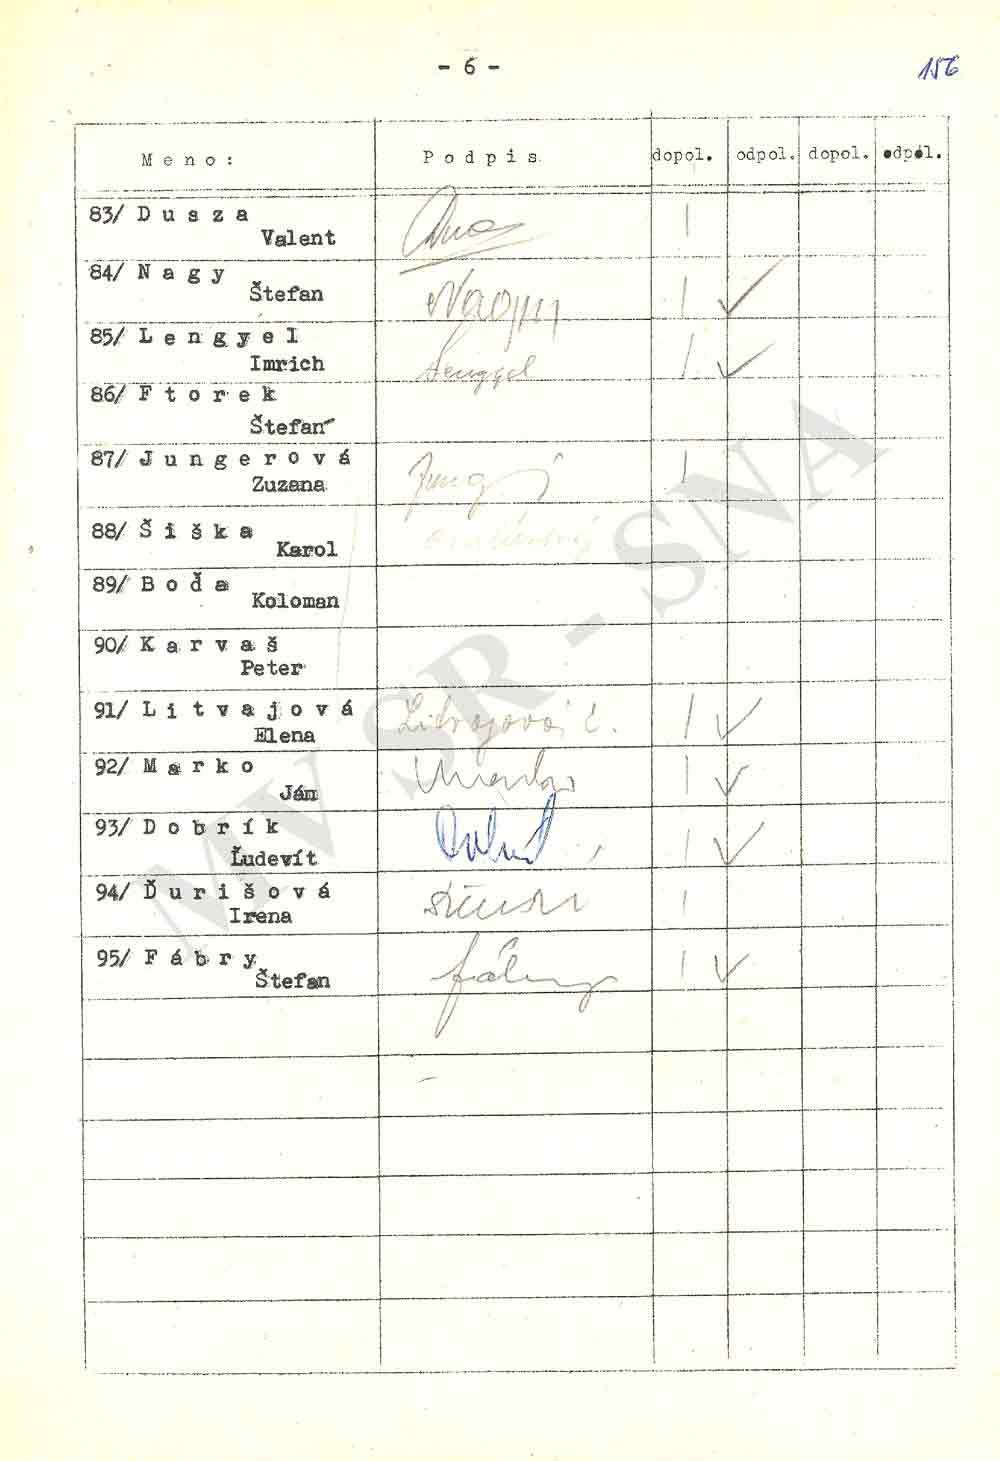 - 6 -
156
Meno: Podpis dopol. odpol. dopol. odpol.
83/ Dusza
Valent
84/ Nagy
Štefan Nagy
85/ Lengyel
Imrich Lengyel
86/ Ftorek
Štefan
87/ Jungerová
Zuzana Jung
88/ Šiška
Karol
89/ Boďa
Koloman
90/ Karvaš
Peter
91/ Litvajová
Elena Litvajová E.
92/ Marko
Ján Marko
93/ Dobrík
Ľudevít
94/ Ďurišová
Irena
95/ Fábry
Štefan Fábry
MV SR - SNA